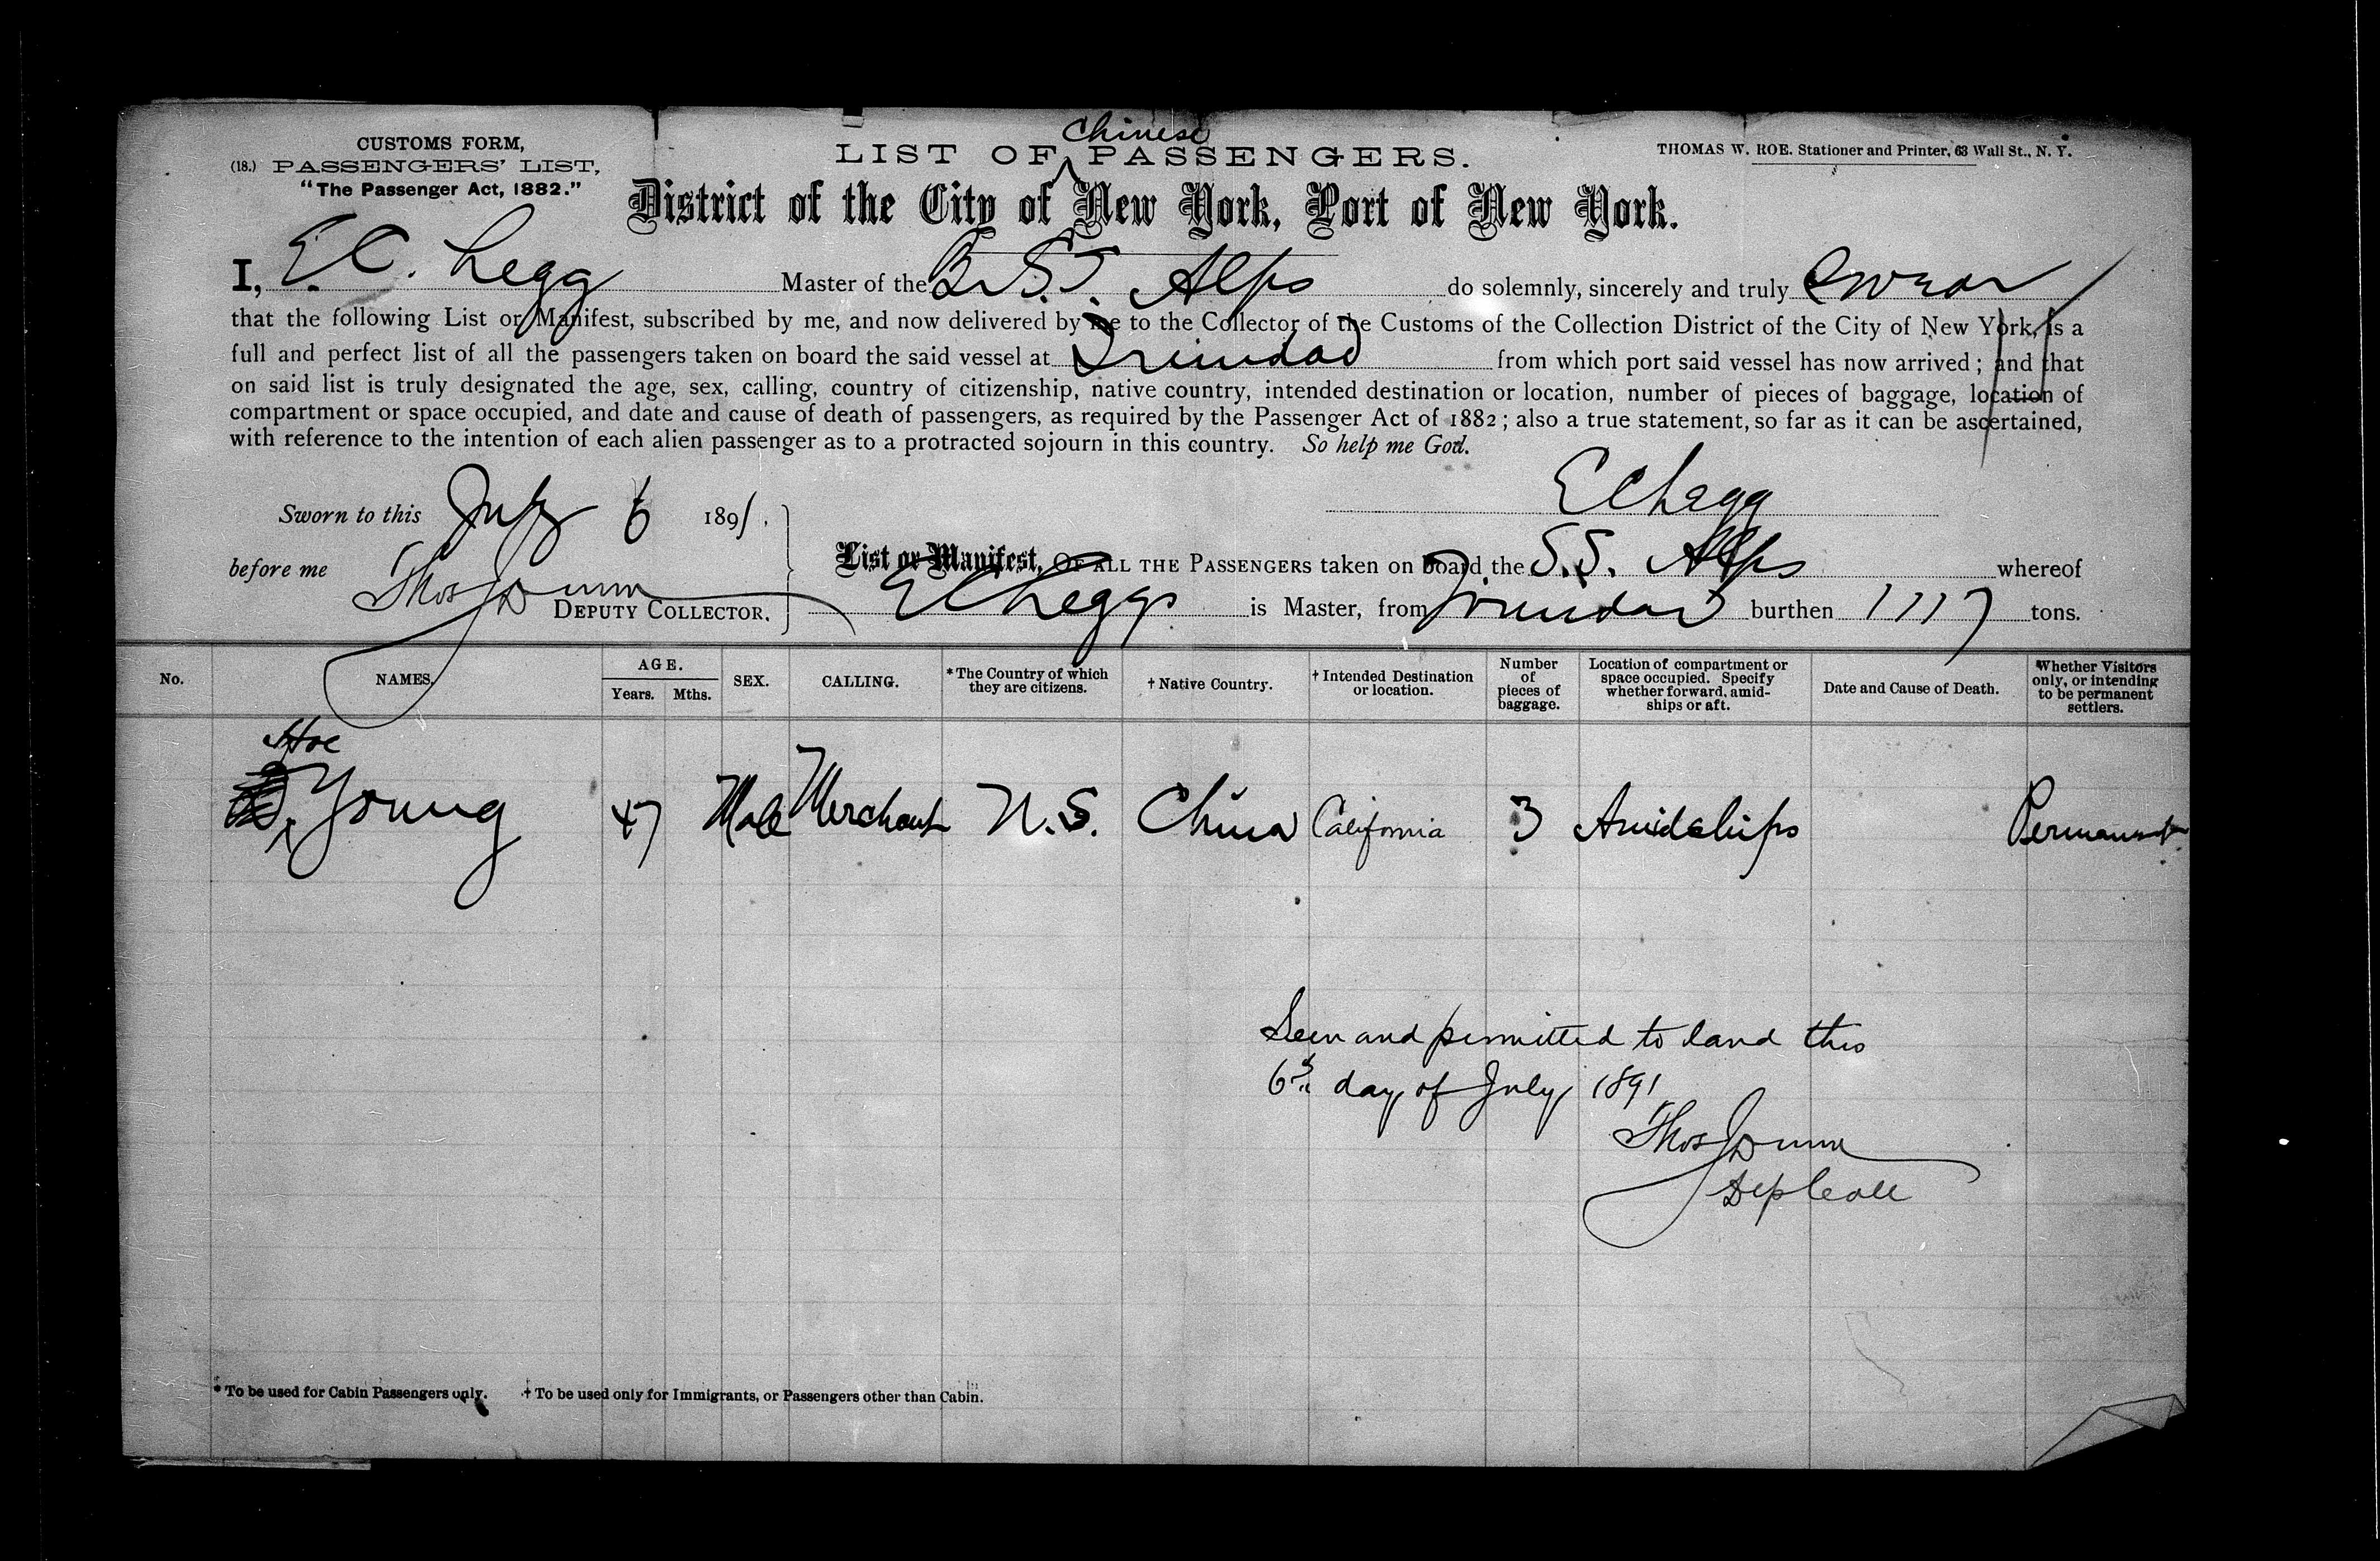 CUSTOMS FORM,
(18.) PASSENGERS' LIST,
"The Passenger Act, 1882."
Chinese
LIST OF PASSENGERS.
THOMAS W. ROE. Stationer and Printer, 63 Wall St., N. Y.
District of the City of New York, Port of New York.
I, E.C. Legg Master of the Br S.S. Alps do solemnly, sincerely and truly swear
that the following List or Manifest, subscribed by me, and now delivered by me to the Collector of the Customs of the Collection District of the City of New York, is a
full and perfect list of all the passengers taken on board the said vessel at Trinidad from which port said vessel has now arrived; and that
on said list is truly designated the age, sex, calling, country of citizenship, native country, intended destination or location, number of pieces of baggage, location of
compartment or space occupied, and date and cause of death of passengers, as required by the Passenger Act of 1882; also a true statement, so far as it can be ascertained,
with reference to the intention of each alien passenger as to a protracted sojourn in this country. So help me God.
E C Legg
Sworn to this July 6 1891.
before me Thos Dunn
DEPUTY COLLECTOR.
List or Manifest, OF ALL THE PASSENGERS taken on board the S.S. Alps whereof
E C Legg is Master, from Trinidad burthen 1117 tons.
No. NAMES. AGE. Years. Mths. SEX. CALLING. * The Country of which they are citizens. † Native Country. † Intended Destination or location. Number of pieces of baggage. Location of compartment or space occupied. Specify whether forward, amidships or aft. Date and Cause of Death. Whether Visitors only, or intending to be permanent settlers.
Hoe
Young 47 Male Merchant U.S. China California 3 Amidships Permanent
Seen and permitted to land this
6th day of July 1891
Thos Dunn
Dep Coll
* To be used for Cabin Passengers only. † To be used only for Immigrants, or Passengers other than Cabin.